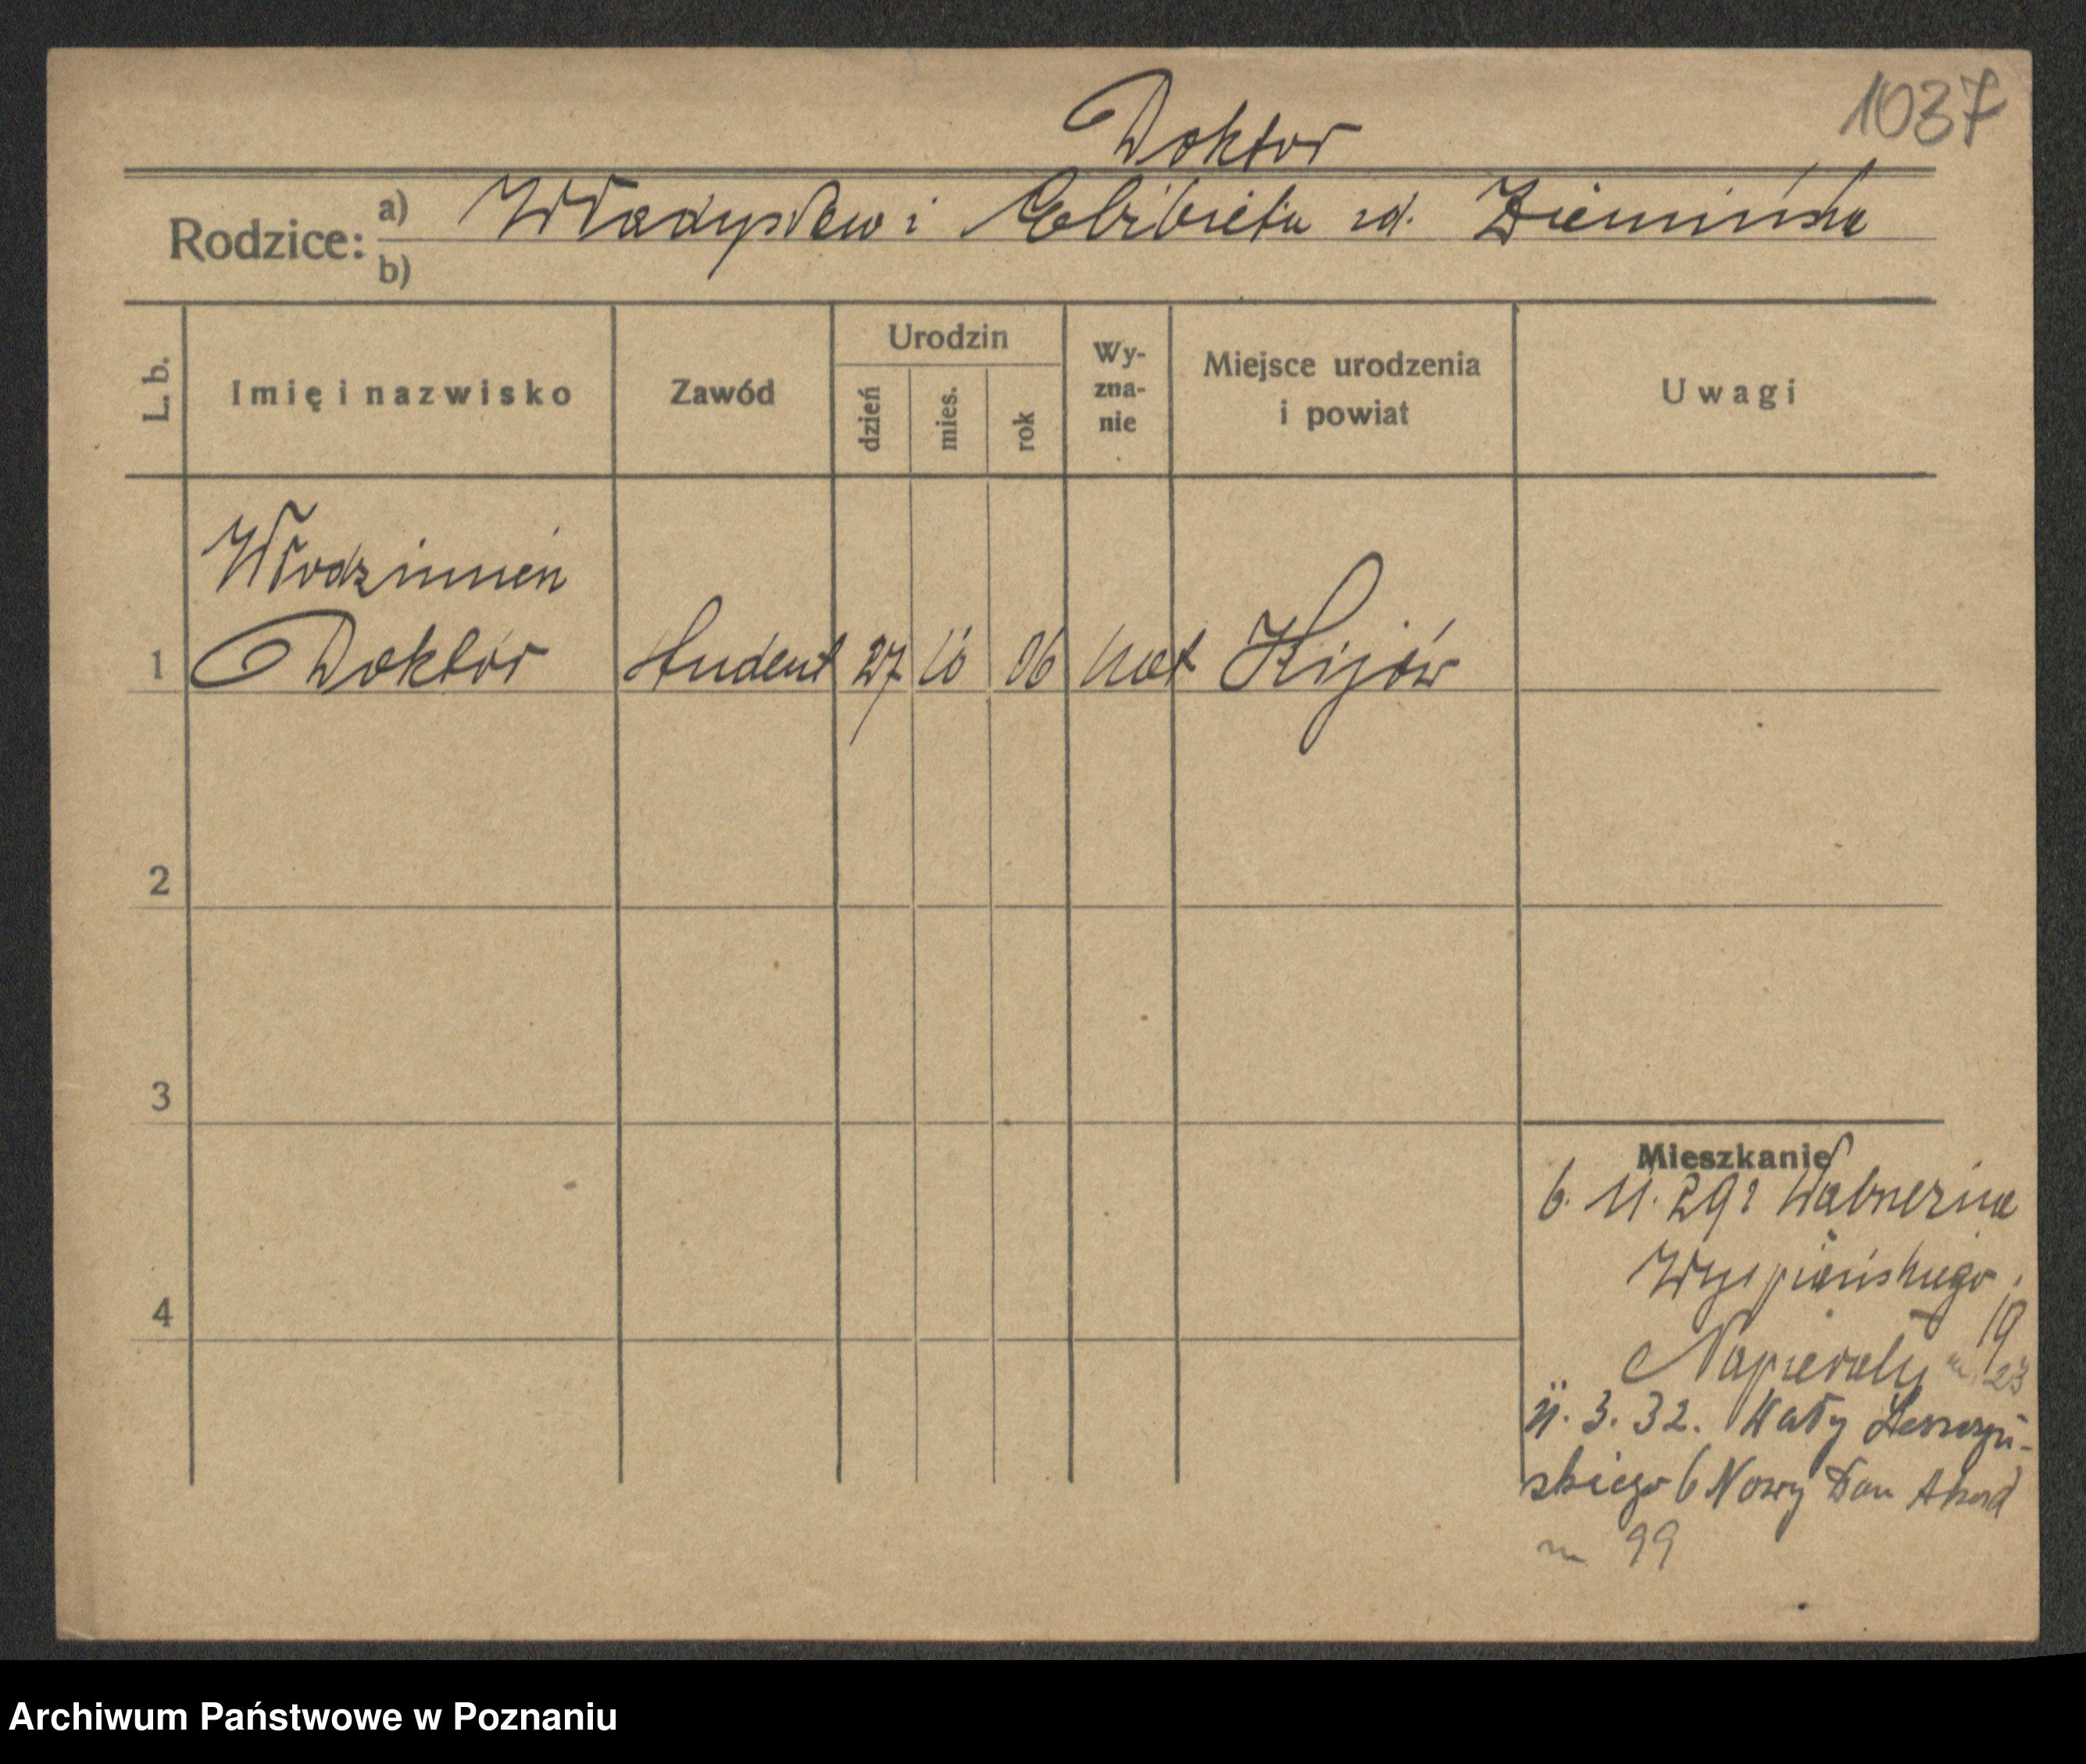 1037
Doktor
Rodzice: a) Władysław i Elżbieta zd. Ziemińska
b)
L. b. Imię i nazwisko Zawód Urodzin dzień mies. rok Wy-zna-nie Miejsce urodzenia i powiat Uwagi
Włodzimierz
1 Doktór student 27 10 06 kat Kijów
2
3
Mieszkanie
6. 11. 29
Wyspiańskiego
4
19
Napierały m 23
11. 3. 32. Wały Leszczyń-
skiego 6 Nowy Dom Akad
m 99
Archiwum Państwowe w Poznaniu